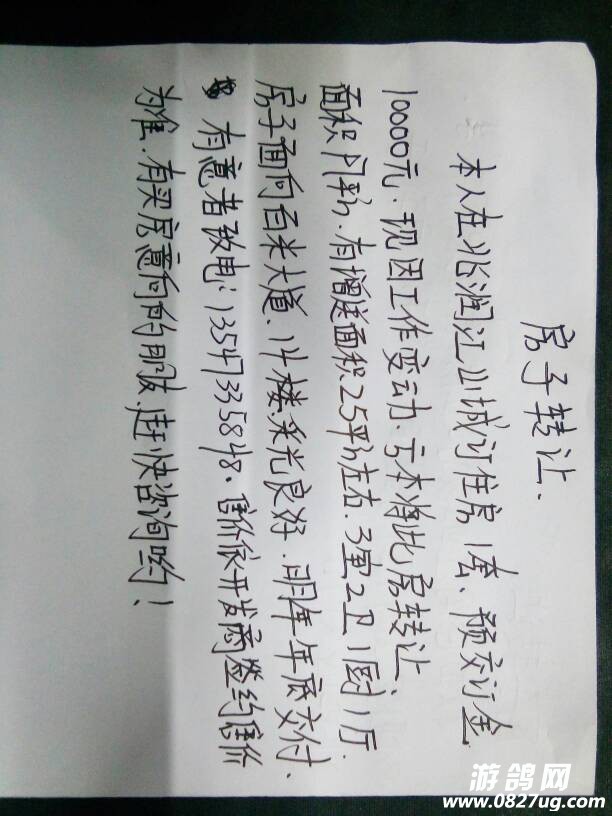 房子转让.
本人在兆润江山城订住房1套、预交订金
10000元.现因工作变动.亏本将此房转让、
面积 平.有增送面积25平左右.3室2卫1厨1厅.
房子面向百米大道、 楼.采光良好.明年年底交付.
有意者致电:13547335848.售价依开发商签约售价
为准.有买房意向的朋友.赶快咨询哟!
游鸽网
www.0827ug.com